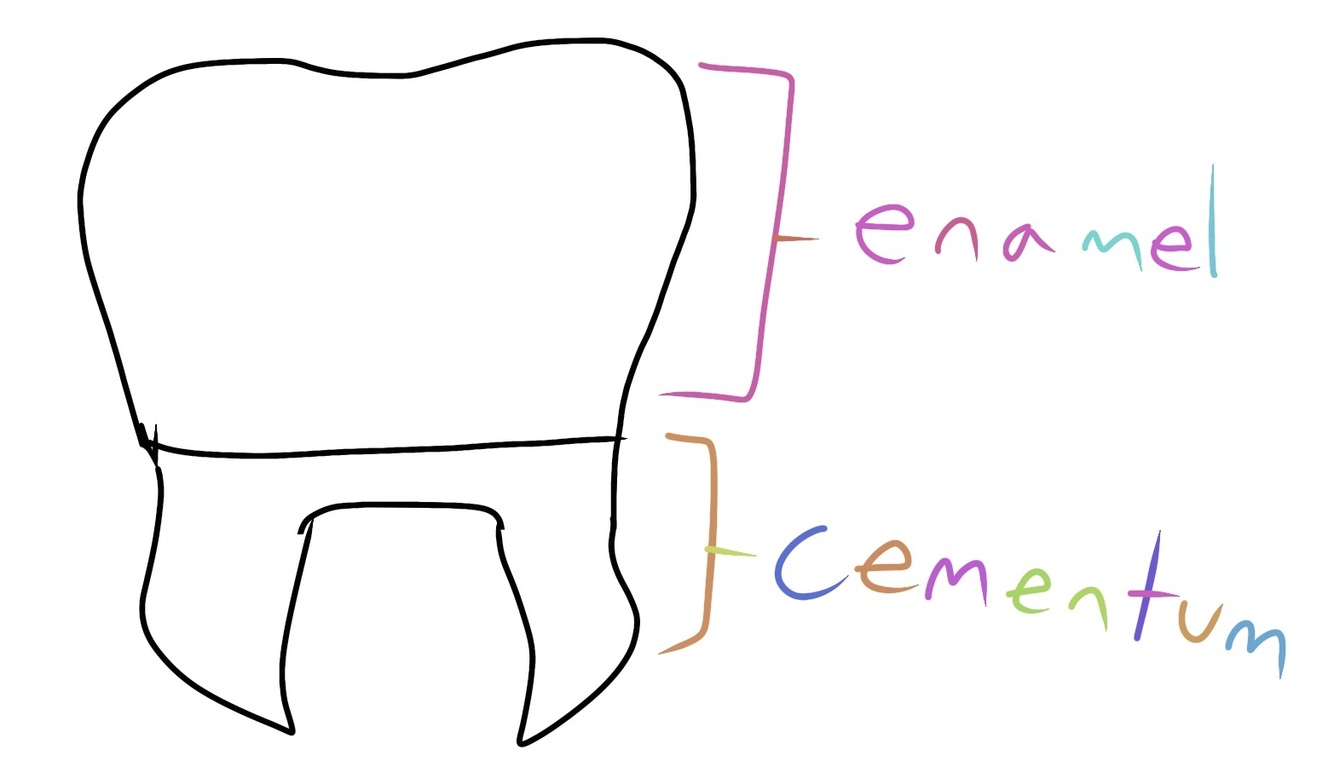 enamel
cementum